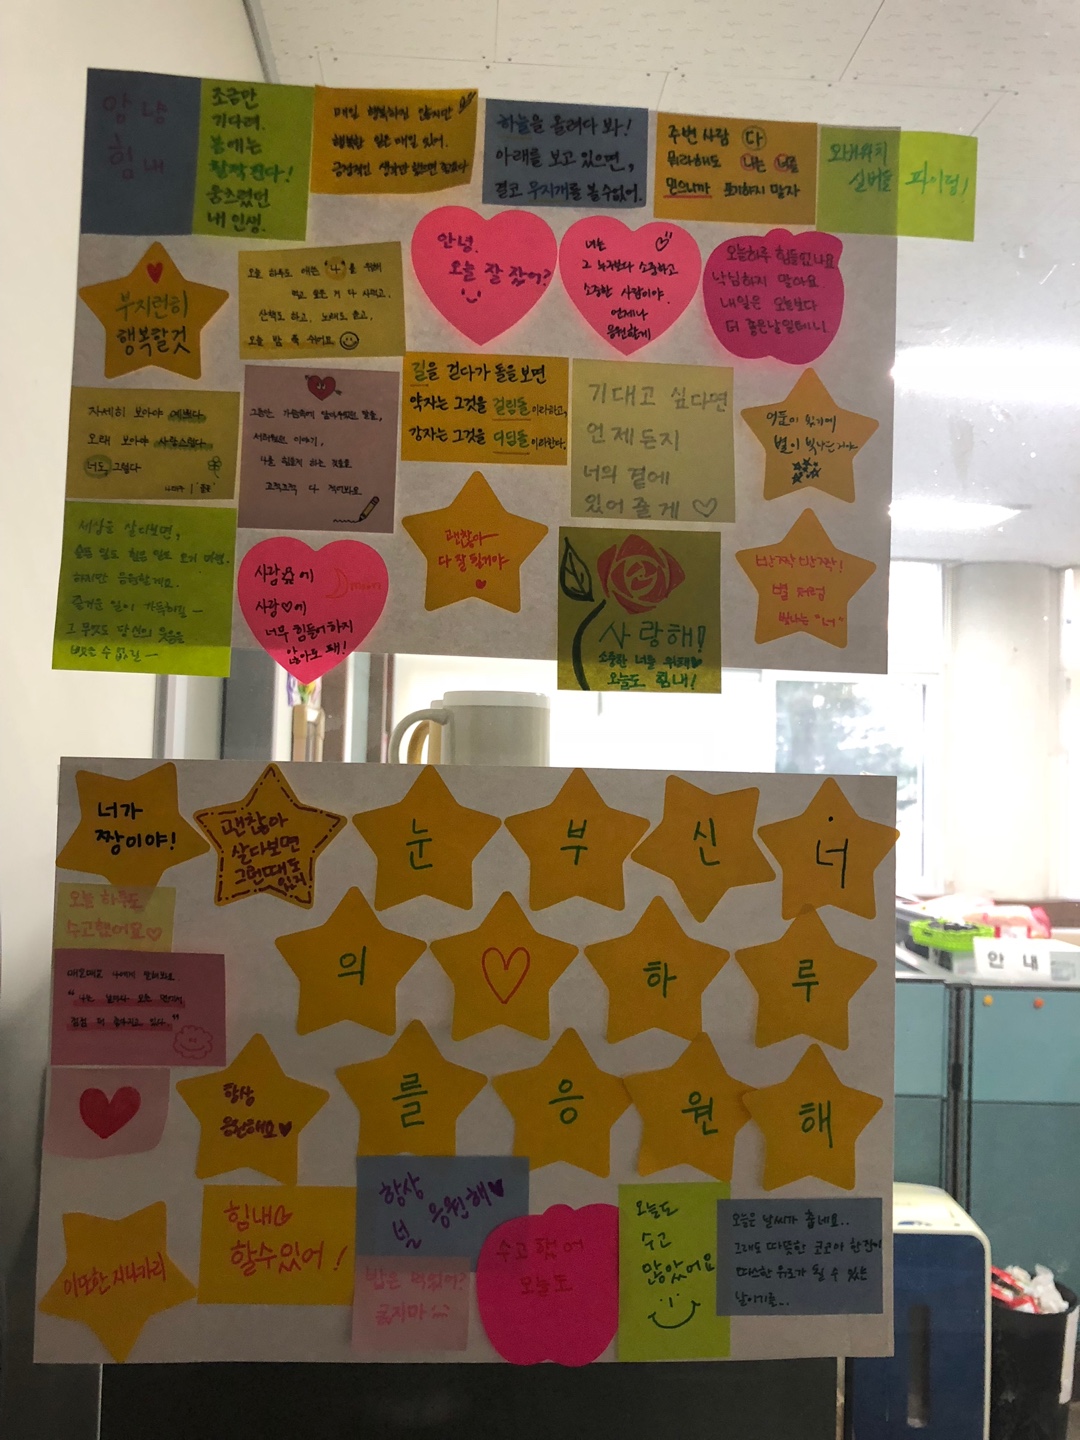 얌 냠
힘 내
조금만
기다려.
봄에는
활짝 핀다!
움츠렸던
내 인생.
매일 행복하진 않지만
행복한 일은 매일 있어.
긍정적인 생각만 했으면 좋겠다
하늘을 올려다 봐!
아래를 보고 있으면,
결코 무지개를 볼 수 없어.
주변 사람 다
뭐라해도 나는 너를
믿으니까 포기하지 말자
실버들 파이팅!
부지런히
행복할것
오늘 하루도 애쓴 "나"를 위해
먹고 싶은 거 다 사먹고,
산책도 하고, 노래도 듣고,
오늘 밤 푹 쉬어요
안녕.
오늘 잘 잤어?
너는
그 누구보다 소중하고
소중한 사람이야.
언제나
응원할게
오늘하루 힘들었나요
낙심하지 말아요
내일은 오늘보다
더 좋은날일테니
자세히 보아야 예쁘다
오래 보아야 사랑스럽다
너도 그렇다
그동안 가슴속에 담아두었던 말들,
서러웠던 이야기,
나를 힘들게 하는 것들을
끄적끄적 다 적어봐요
길을 걷다가 돌을 보면
약자는 그것을 걸림돌이라하고,
강자는 그것을 디딤돌이라한다.
기대고 싶다면
언제든지
너의 곁에
있어 줄게 ♡
어둠이 있기에
별이 빛나는거야
세상을 살다보면,
슬픈 일도 힘든 일도 오기 마련.
하지만 응원할게요.
즐거운 일이 가득하길 ㅡ
그 무엇도 당신의 웃음을
뺏을 수 없길 ㅡ
사랑에
사랑♡에
너무 힘들어하지
않아도 돼!
괜찮아
다 잘 될거야
♥
사랑해!
소중한 너를 위해♥
오늘도 힘내!
반짝 반짝!
별 처럼
빛나는 "너"
너가
짱이야!
괜찮아
살다보면
그런때도
있지
눈 부 신 너
의 ♡ 하 루
를 응 원 해
오늘 하루도
수고했어요♡
매일매일 나에게 말해봐요
"나는 날마다 모든 면에서
점점 더 좋아지고 있다."
항상
응원해요♥
이또한 지나가리
힘내
할수있어!
항상
널 응원해♥
밥은 먹었어?
굶지마
수고했어
오늘도
오늘도
수고
많았어요
오늘은 날씨가 춥네요..
그래도 따뜻한 코코아 한잔이
따스한 위로가 될 수 있는
날이기를...
안 내